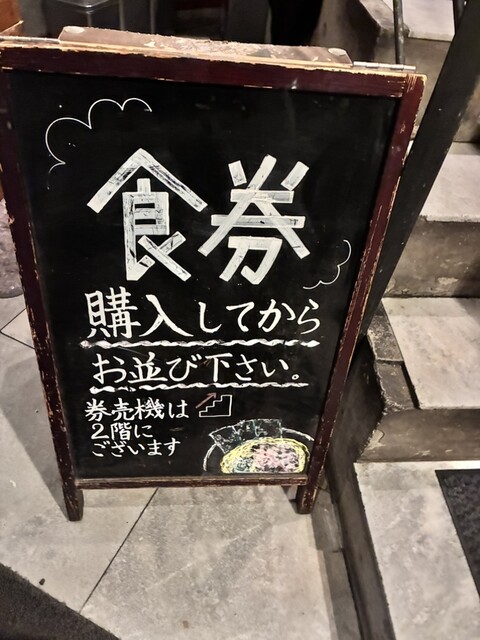 食券
購入してから
お並び下さい。
券売機は
2階に
ございます